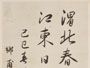 渭北春
江東日
己巳春